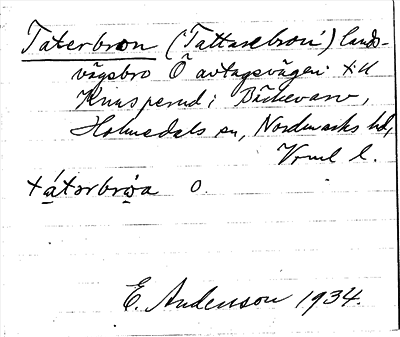 Taterbron (Tattarebron) lands-
vägsbro Ö avtagsvägen till
Knusperud i Bäckevarv,
Holmedals sn, Nordmarks hd,
Vrml l.
tátərbrọ̀a O.
E. Andersson 1934.